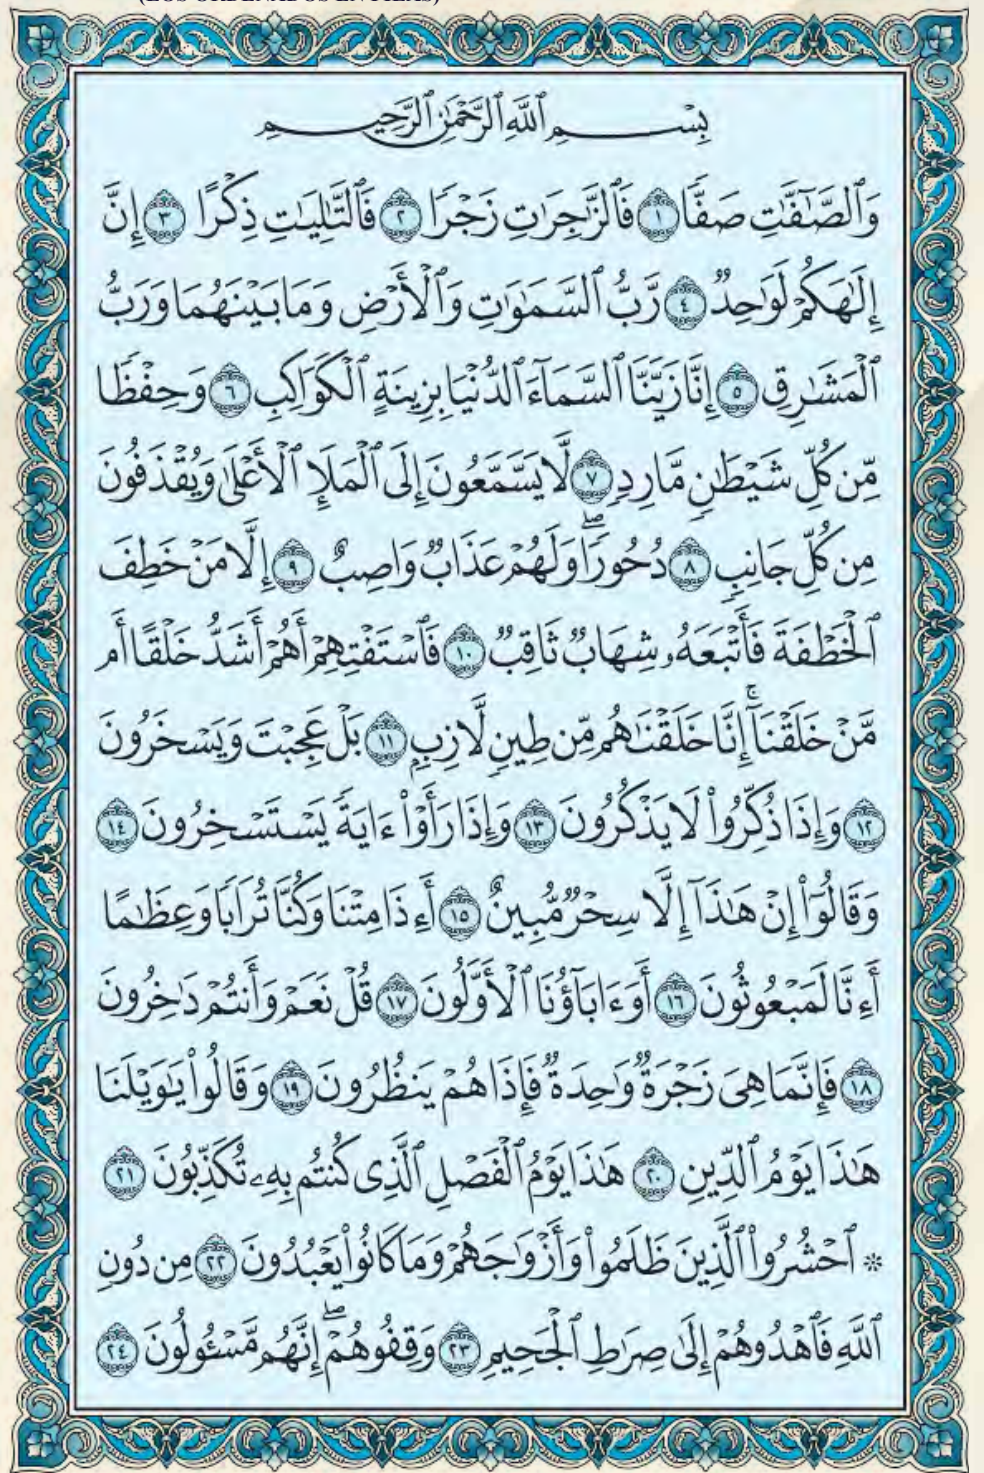 (LOS ORDENADOS EN FILAS)
بِسْمِ ٱللَّهِ ٱلرَّحْمَٰنِ ٱلرَّحِيمِ
وَٱلصَّـٰٓفَّـٰتِ صَفًّا ١ فَٱلزَّٰجِرَٰتِ زَجْرًا ٢ فَٱلتَّـٰلِيَـٰتِ ذِكْرًا ٣ إِنَّ
إِلَـٰهَكُمْ لَوَٰحِدٌ ٤ رَّبُّ ٱلسَّمَـٰوَٰتِ وَٱلْأَرْضِ وَمَا بَيْنَهُمَا وَرَبُّ
ٱلْمَشَـٰرِقِ ٥ إِنَّا زَيَّنَّا ٱلسَّمَآءَ ٱلدُّنْيَا بِزِينَةٍ ٱلْكَوَاكِبِ ٦ وَحِفْظًا
مِّن كُلِّ شَيْطَـٰنٍ مَّارِدٍ ٧ لَّا يَسَّمَّعُونَ إِلَى ٱلْمَلَإِ ٱلْأَعْلَىٰ وَيُقْذَفُونَ
مِن كُلِّ جَانِبٍ ٨ دُحُورًا ۖ وَلَهُمْ عَذَابٌ وَاصِبٌ ٩ إِلَّا مَنْ خَطِفَ
ٱلْخَطْفَةَ فَأَتْبَعَهُۥ شِهَابٌ ثَاقِبٌ ١٠ فَٱسْتَفْتِهِمْ أَهُمْ أَشَدُّ خَلْقًا أَم
مَّنْ خَلَقْنَآ ۚ إِنَّا خَلَقْنَـٰهُم مِّن طِينٍ لَّازِبٍ ١١ بَلْ عَجِبْتَ وَيَسْخَرُونَ
١٢ وَإِذَا ذُكِّرُوا۟ لَا يَذْكُرُونَ ١٣ وَإِذَا رَأَوْا۟ ءَايَةً يَسْتَسْخِرُونَ ١٤
وَقَالُوٓا۟ إِنْ هَـٰذَآ إِلَّا سِحْرٌ مُّبِينٌ ١٥ أَءِذَا مِتْنَا وَكُنَّا تُرَابًا وَعِظَـٰمًا
أَءِنَّا لَمَبْعُوثُونَ ١٦ أَوَءَابَآؤُنَا ٱلْأَوَّلُونَ ١٧ قُلْ نَعَمْ وَأَنتُمْ دَٰخِرُونَ
١٨ فَإِنَّمَا هِىَ زَجْرَةٌ وَٰحِدَةٌ فَإِذَا هُمْ يَنظُرُونَ ١٩ وَقَالُوا۟ يَـٰوَيْلَنَا
هَـٰذَا يَوْمُ ٱلدِّينِ ٢٠ هَـٰذَا يَوْمُ ٱلْفَصْلِ ٱلَّذِى كُنتُم بِهِۦ تُكَذِّبُونَ ٢١
۞ ٱحْشُرُوا۟ ٱلَّذِينَ ظَلَمُوا۟ وَأَزْوَٰجَهُمْ وَمَا كَانُوا۟ يَعْبُدُونَ ٢٢ مِن دُونِ
ٱللَّهِ فَٱهْدُوهُمْ إِلَىٰ صِرَٰطِ ٱلْجَحِيمِ ٢٣ وَقِفُوهُمْ ۖ إِنَّهُم مَّسْـُٔولُونَ ٢٤